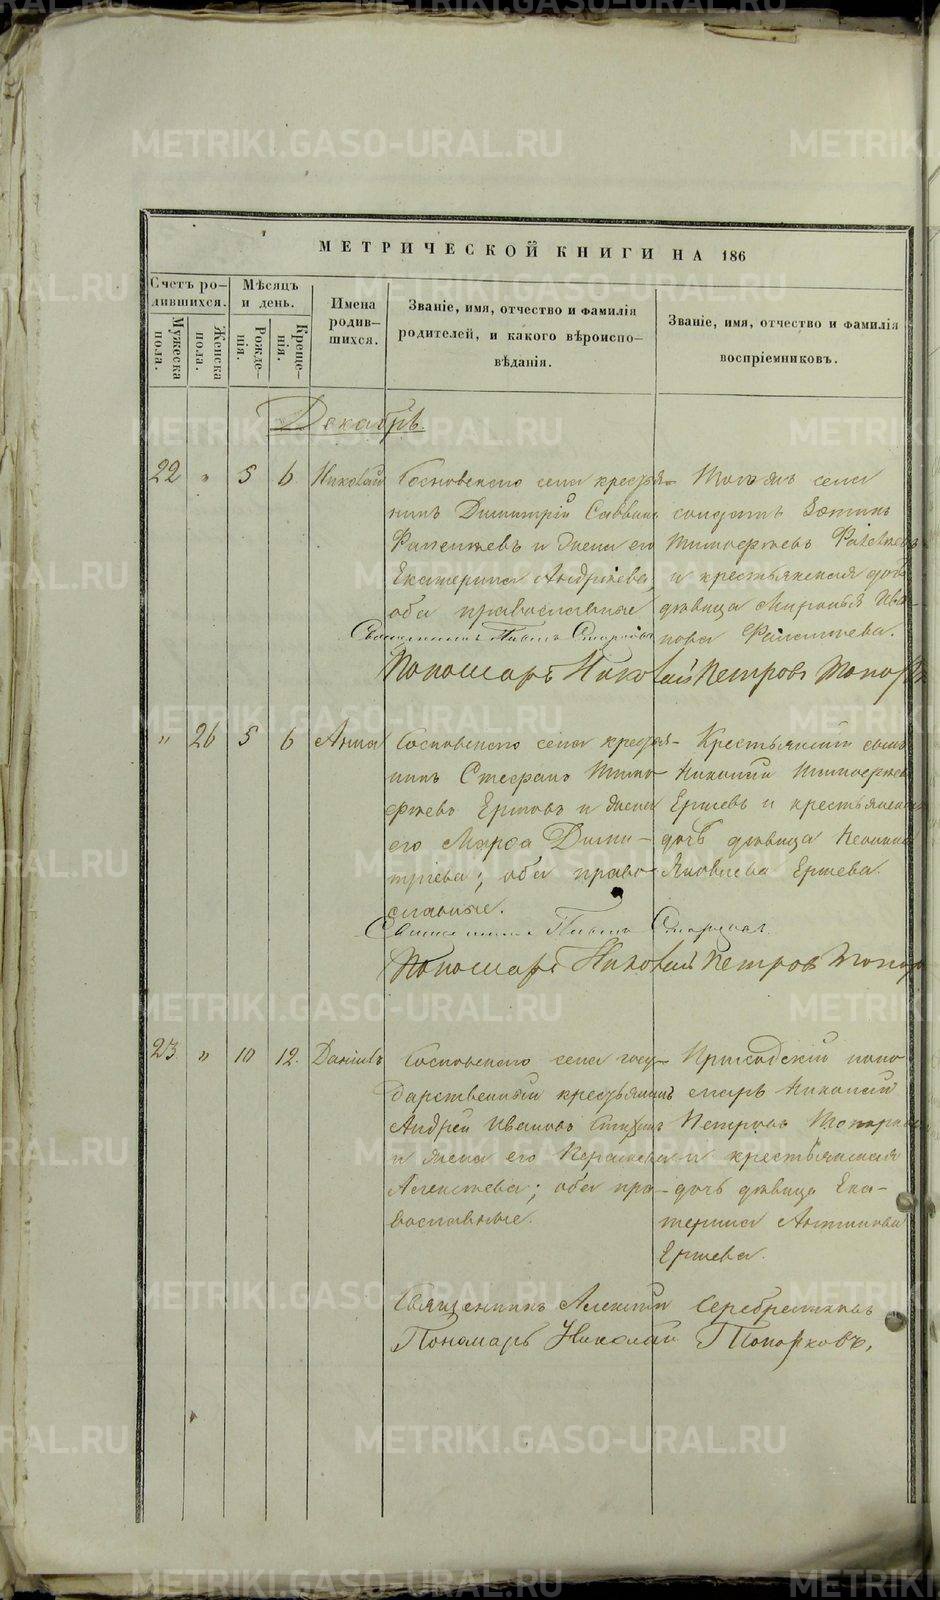 МЕТРИЧЕСКОЙ КНИГИ НА 186
Счетъ ро-
дившихся.
Мужеска
пола.
Женска
пола.
Мѣсяцъ
и день.
Рожде-
нія.
Креще-
нія.
Имена
родив-
шихся.
Званіе, имя, отчество и фамилія
родителей, и какого вѣроиспо-
вѣданія.
Званіе, имя, отчество и фамилія
воспріемниковъ.
Декабрь.
22 " 5 6 Николай
Сосновскаго села крестья-
нинъ Димитрій Саввинъ
и жена его
Екатерина Андрѣева,
оба православные
Тогожъ села
солдатъ
Тимофѣевъ
и крестьянская дочь
дѣвица Ива-
нова
Священникъ
Пономарь Николай Петровъ
" 26 5 6 Анна
Сосновскаго села крестья-
нинъ Стефанъ Тимо-
фѣевъ Ершовъ и жена
его Марѳа Дими-
тріева; оба право-
славные.
Крестьянскій сынъ
Николай Тимофѣевъ
Ершевъ и крестьянская
дочь дѣвица
Яковлева Ершева.
Священникъ
Пономарь Николай Петровъ
23 " 10 12. Даніилъ
Сосновскаго села госу-
дарственный крестьянинъ
Андрей Ивановъ
и жена его Параскева
Алексѣева; оба пра-
вославные.
Приходскій поно-
марь Николай
Петровъ Топорковъ
и крестьянская
дочь дѣвица Ека-
терина Антипова
Ершева.
Священникъ Алексій Серебренниковъ
Пономарь Николай Топорковъ.
METRIKI.GASO-URAL.RU